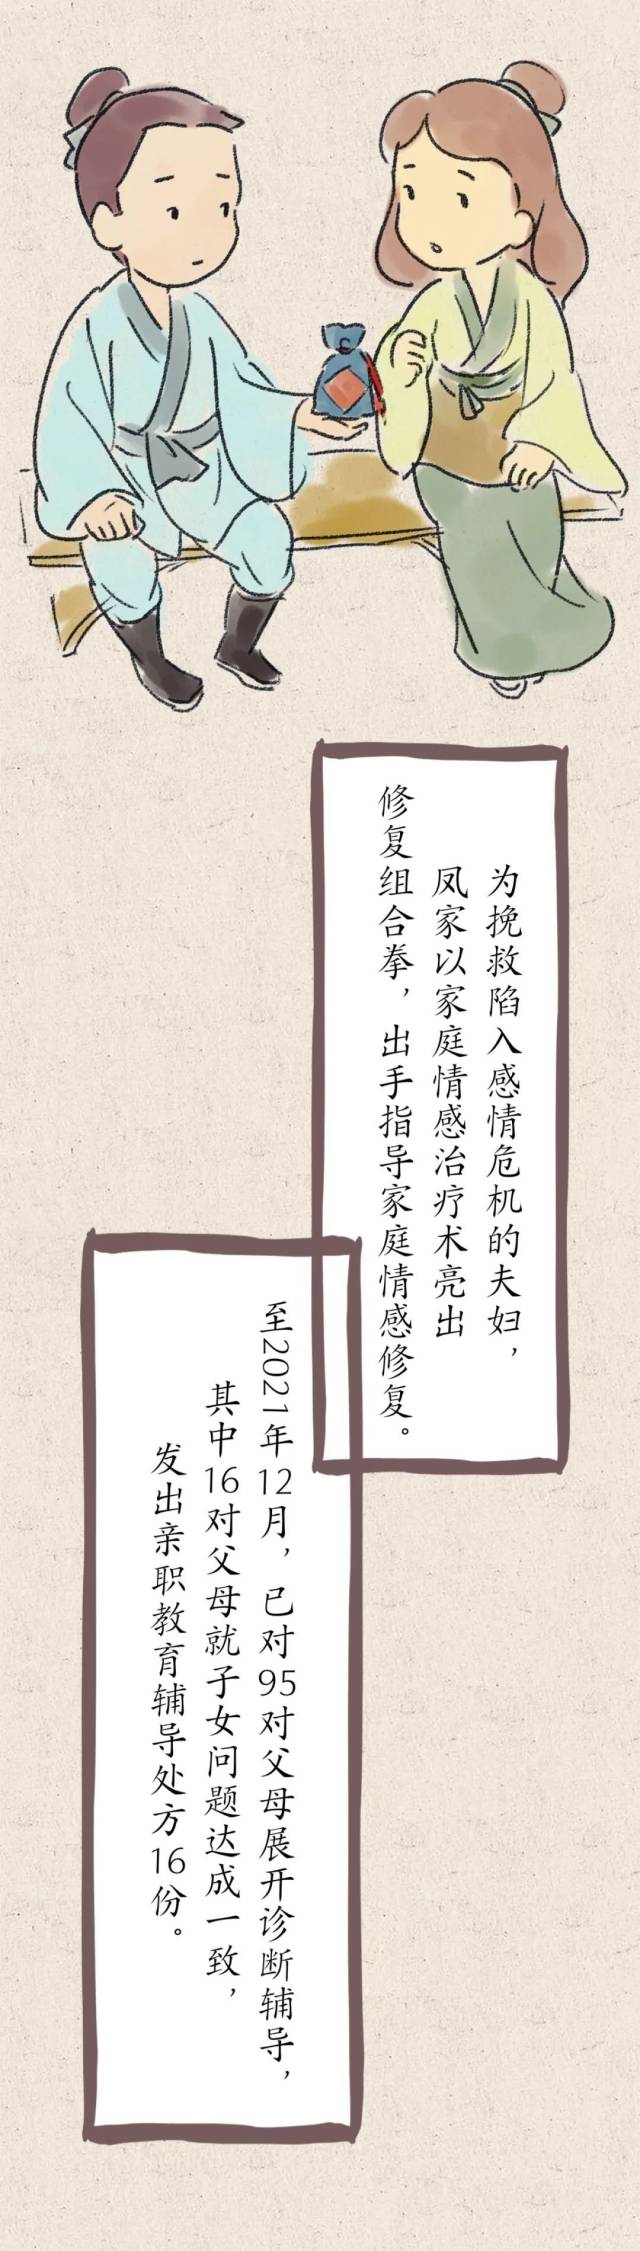 为挽救陷入感情危机的夫妇，
凤家以家庭情感治疗术亮出
修复组合拳，出手指导家庭情感修复。
至2021年12月，已对95对父母展开诊断辅导，
其中16对父母就子女问题达成一致，
发出亲职教育辅导处方16份。